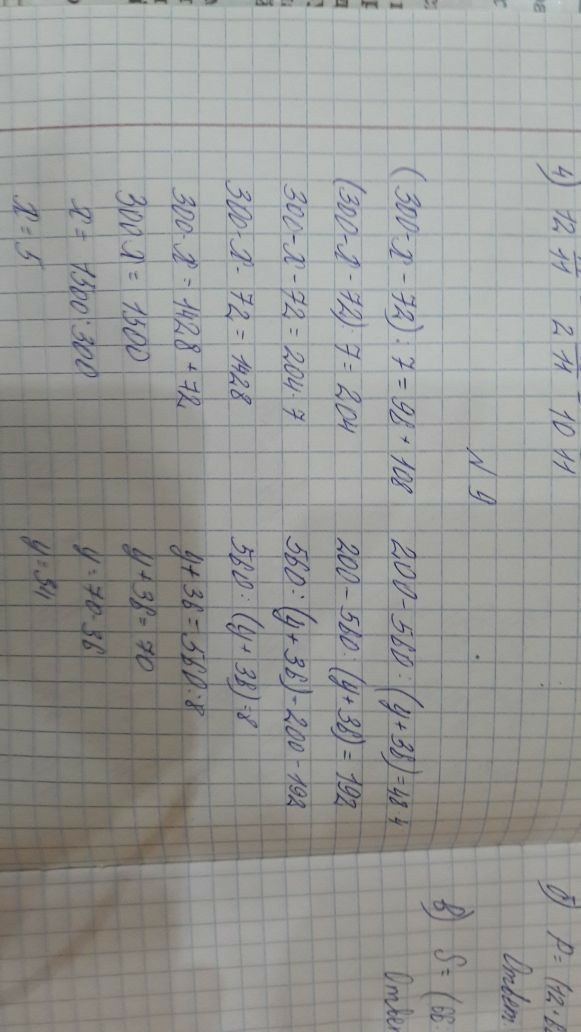 4) 12 11 2 11 = 10 11
N 9
(300·x - 72) : 7 = 96 + 108
(300·x - 72) : 7 = 204
300·x - 72 = 204·7
300·x - 72 = 1428
300·x = 1428 + 72
300·x = 1500
x = 1500 : 300
x = 5
200 - 560 : (y + 36) = 48·4
200 - 560 : (y + 36) = 192
560 : (y + 36) = 200 - 192
560 : (y + 36) = 8
y + 36 = 560 : 8
y + 36 = 70
y = 70 - 36
y = 34
б) P = (42 ·
Ответ
в) S = (68
Ответ